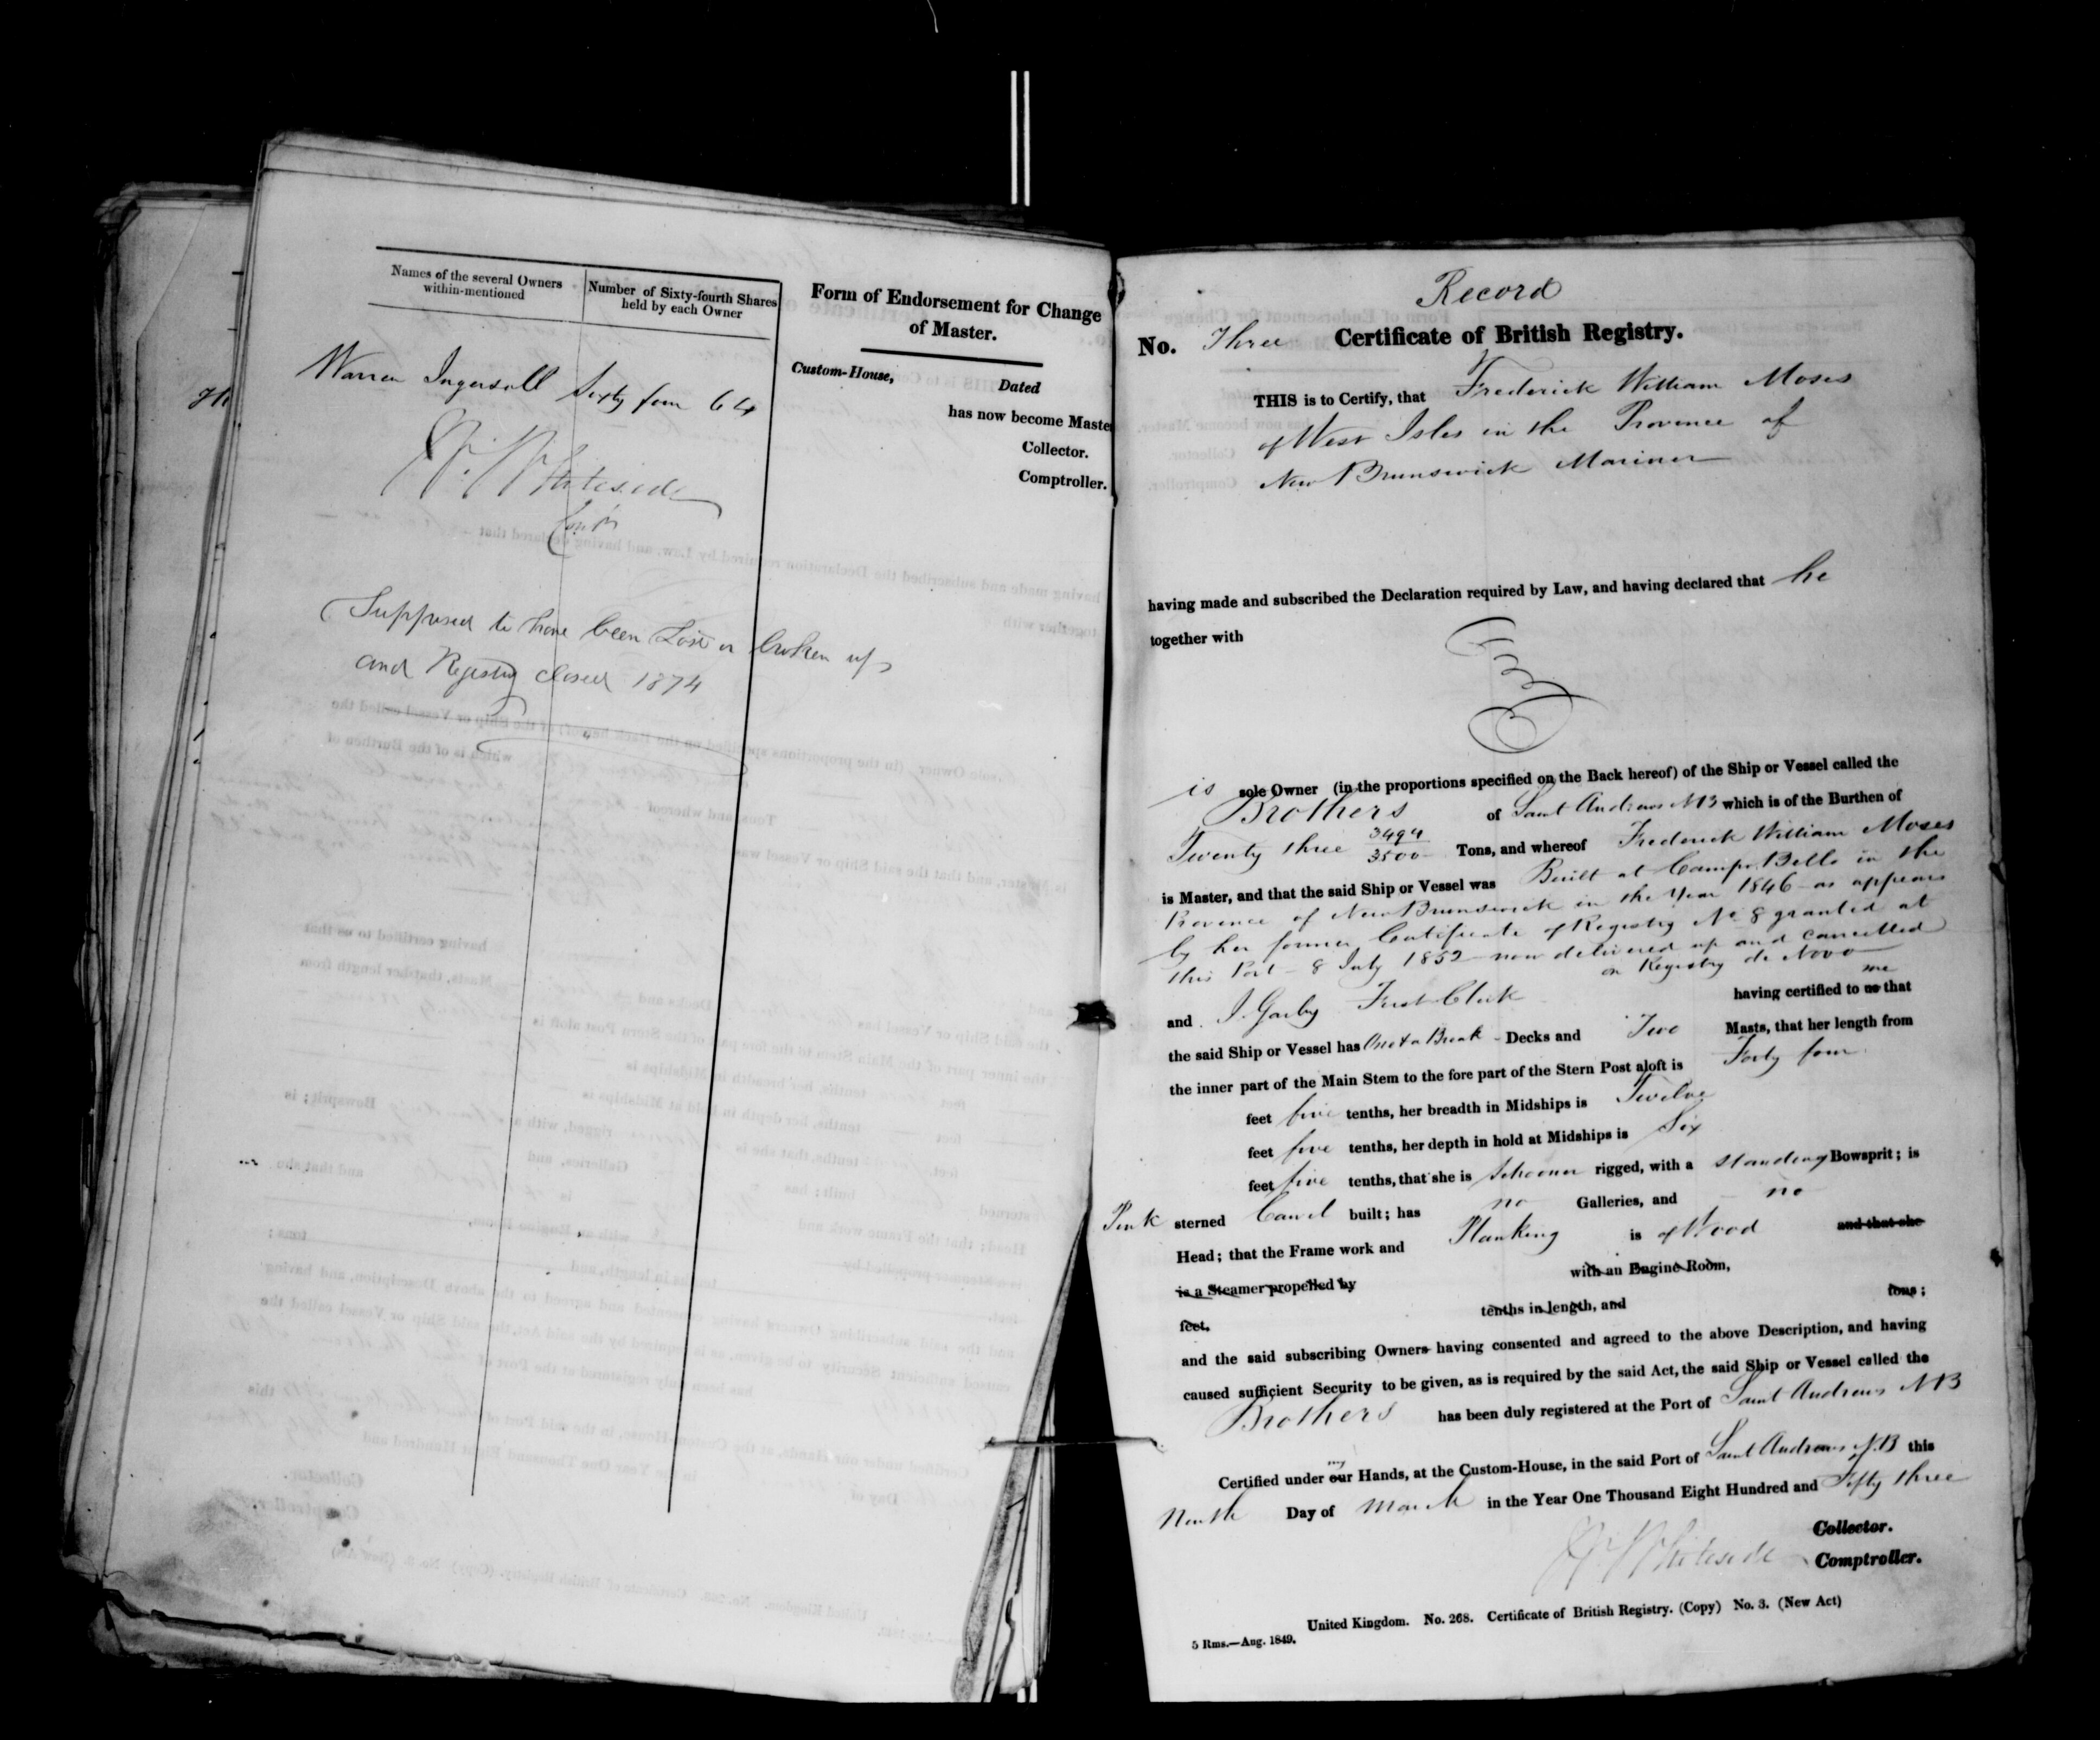 Names of the several Owners within-mentioned
Number of Sixty-fourth Shares held by each Owner
Warren Ingersoll Sixty four 64
W. Whiteside
Compr
Supposed to have been Lost or broken up
and Registry closed 1874
Form of Endorsement for Change
of Master.
Custom-House,
Dated
has now become Maste
Collector.
Comptroller.
Record
No. Three Certificate of British Registry.
THIS is to Certify, that Frederick William Moses
of West Isles in the Province of
New Brunswick Mariner
having made and subscribed the Declaration required by Law, and having declared that he
together with
is sole Owner (in the proportions specified on the Back hereof) of the Ship or Vessel called the
Brothers of Saint Andrews NB which is of the Burthen of
Twenty three 3494/3500 Tons, and whereof Frederick William Moses
is Master, and that the said Ship or Vessel was Built at Campo Bello in the
Province of New Brunswick in the Year 1846 as appears
by her former Certificate of Registry No 8 granted at
this Port 8 July 1852 now delivered up and cancelled
on Registry de Novo
and J. Garby First Clerk having certified to us me that
the said Ship or Vessel has One & a Break Decks and Two Masts, that her length from
the inner part of the Main Stem to the fore part of the Stern Post aloft is Forty four
feet five tenths, her breadth in Midships is Twelve
feet five tenths, her depth in hold at Midships is Six
feet five tenths, that she is Schooner rigged, with a standing Bowsprit; is
Pink sterned Carvel built; has no Galleries, and no
Head; that the Frame work and Planking is of Wood and that she
is a Steamer propelled by with an Engine Room,
feet, tenths in length, and tons;
and the said subscribing Owners having consented and agreed to the above Description, and having
caused sufficient Security to be given, as is required by the said Act, the said Ship or Vessel called the
Brothers has been duly registered at the Port of Saint Andrews NB
Certified under our my Hands, at the Custom-House, in the said Port of Saint Andrews N.B this
Ninth Day of March in the Year One Thousand Eight Hundred and Fifty three
Collector.
W. Whiteside Comptroller.
United Kingdom. No. 268. Certificate of British Registry. (Copy) No. 3. (New Act)
5 Rms.—Aug. 1849.